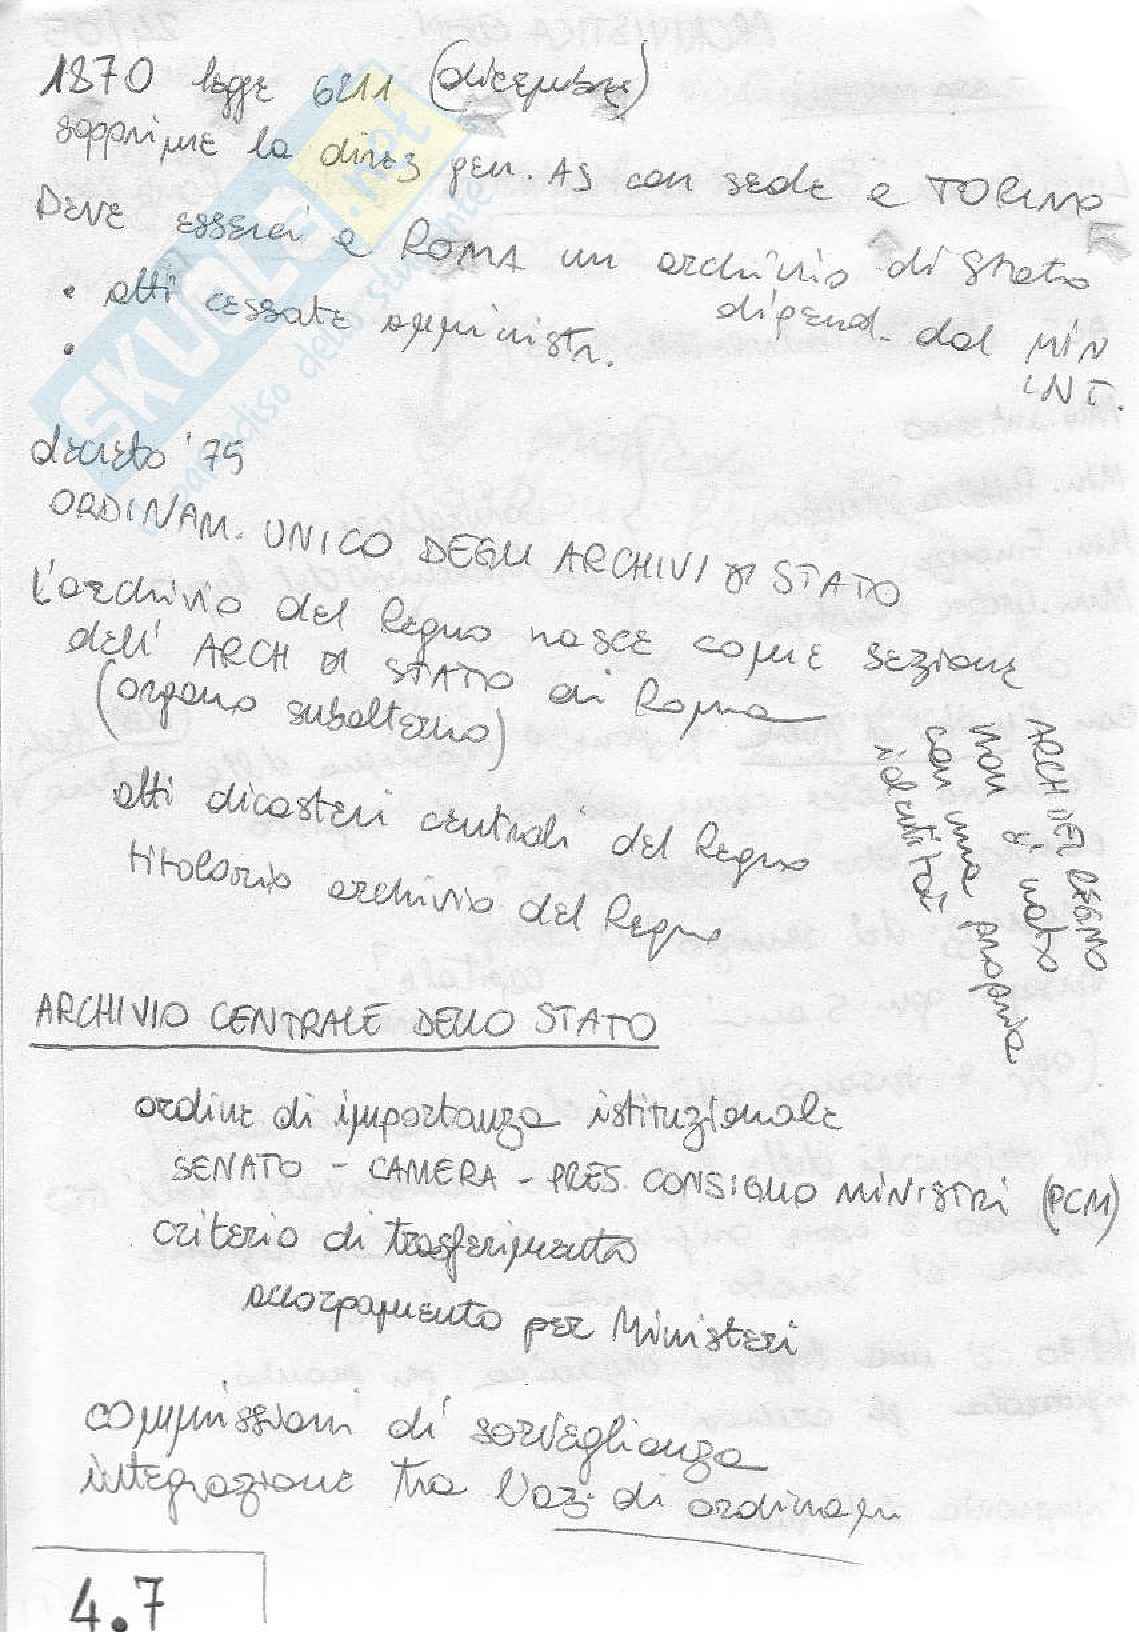 1870 legge 6211 (dicembre)
sopprime la direz gen. AS con sede a TORINO
DEVE esserci a ROMA un archivio di Stato
dipend. dal MIN
INT.
• atti cessate amministr.
•
decreto '75
ORDINAM. UNICO DEGLI ARCHIVI DI STATO
L'archivio del Regno nasce come sezione
dell' ARCH DI STATO di Roma
(organo subalterno)
ARCH DEL REGNO
non è nato
con una propria
identità
atti dicasteri centrali del Regno
titolario archivio del Regno
ARCHIVIO CENTRALE DELLO STATO
ordine di importanza istituzionale
SENATO - CAMERA - PRES. CONSIGLIO MINISTRI (PCM)
criterio di trasferimento
accorpamento per Ministeri
commissioni di sorveglianza
integrazione tra l'az. di ordinam
4.7
SKUOLA.net
paradiso dello studente